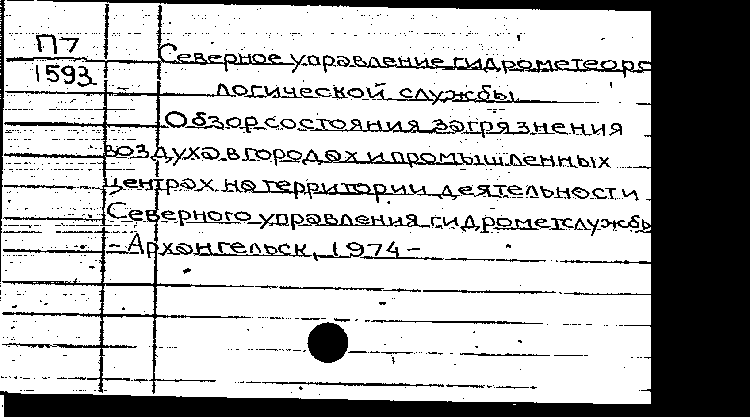 П7
1593
Северное управление гидрометеоро
логической службы
Обзор состояния загрязнения
воздуха в городах и промышленных
центрах на территории деятельности
Северного управления гидрометслужбы
- Архангельск, 1974 -